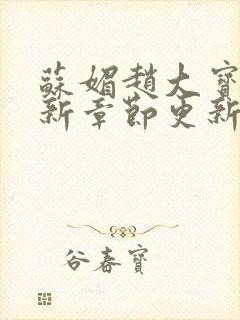 蘇媚趙大寶
新章節更新
谷春寶